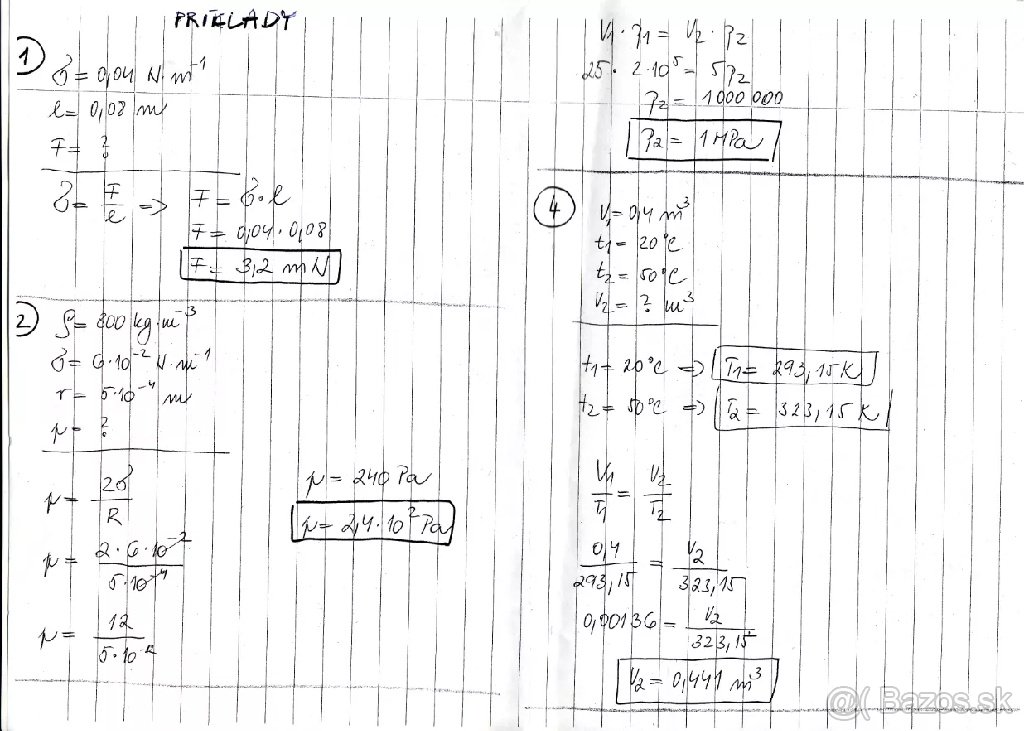 PRÍKLADY
1
σ = 0,04 N·m⁻¹
l = 0,08 m
F = ?
σ = F/l => F = σ·l
F = 0,04·0,08
F = 3,2 mN
2
ρ = 800 kg·m⁻³
σ = 6·10⁻² N·m⁻¹
r = 5·10⁻⁴ m
p = ?
p = 2σ/R
p = 2·6·10⁻²/5·10⁻⁴
p = 12/5·10⁻²
p = 240 Pa
p = 2,4·10² Pa
V₁·p₁ = V₂·p₂
25·2·10⁵ = 5p₂
p₂ = 1000 000
p₂ = 1 MPa
4
V₁ = 0,4 m³
t₁ = 20°C
t₂ = 50°C
V₂ = ? m³
t₁ = 20°C => T₁ = 293,15 K
t₂ = 50°C => T₂ = 323,15 K
V₁/T₁ = V₂/T₂
0,4/293,15 = V₂/323,15
0,00136 = V₂/323,15
V₂ = 0,441 m³
@( Bazos.sk